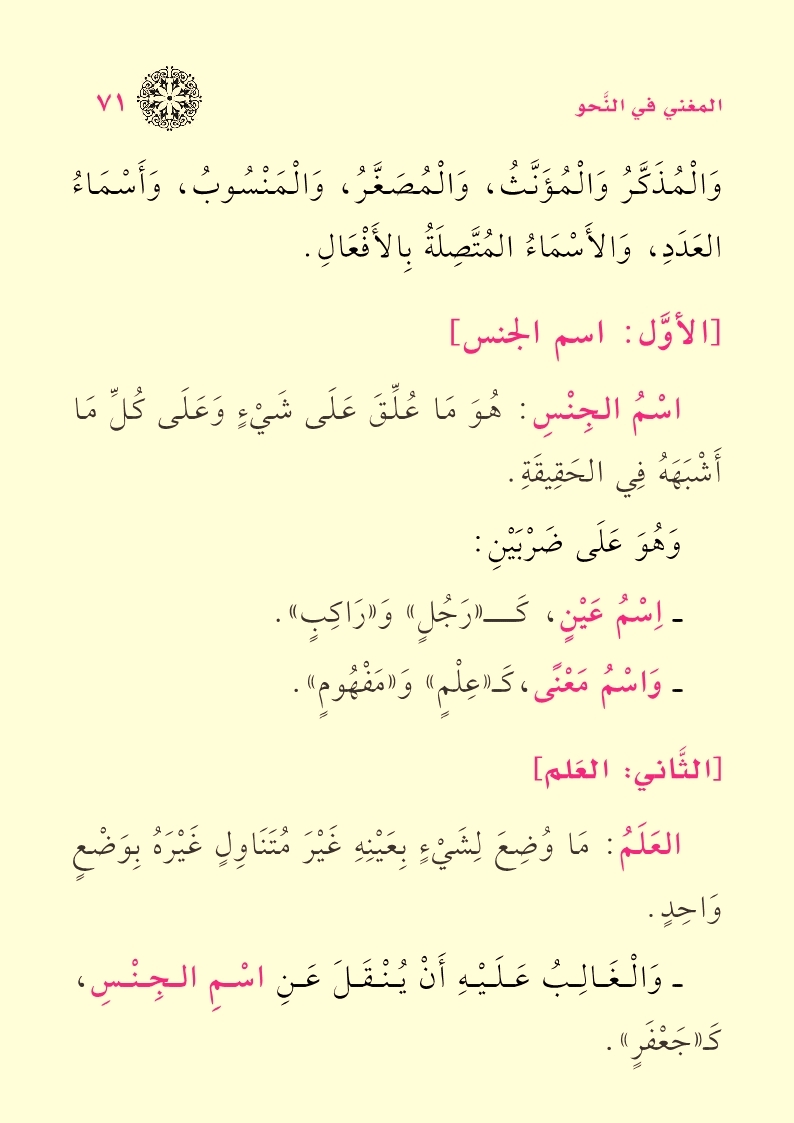 المغني في النَّحو ٧١
وَالْمُذَكَّرُ وَالْمُؤَنَّثُ، وَالْمُصَغَّرُ، وَالْمَنْسُوبُ، وَأَسْمَاءُ
العَدَدِ، وَالأَسْمَاءُ المُتَّصِلَةُ بِالأَفْعَالِ.
[الأوَّل: اسم الجنس]
اسْمُ الجِنْسِ: هُوَ مَا عُلِّقَ عَلَى شَيْءٍ وَعَلَى كُلِّ مَا
أَشْبَهَهُ فِي الحَقِيقَةِ.
وَهُوَ عَلَى ضَرْبَيْنِ:
ـ اِسْمُ عَيْنٍ، كَـ«رَجُلٍ» وَ«رَاكِبٍ».
ـ وَاسْمُ مَعْنًى، كَـ«عِلْمٍ» وَ«مَفْهُومٍ».
[الثَّاني: العَلم]
العَلَمُ: مَا وُضِعَ لِشَيْءٍ بِعَيْنِهِ غَيْرَ مُتَنَاوِلٍ غَيْرَهُ بِوَضْعٍ
وَاحِدٍ.
ـ وَالْغَالِبُ عَلَيْهِ أَنْ يُنْقَلَ عَنِ اسْمِ الجِنْسِ،
كَـ«جَعْفَرٍ».